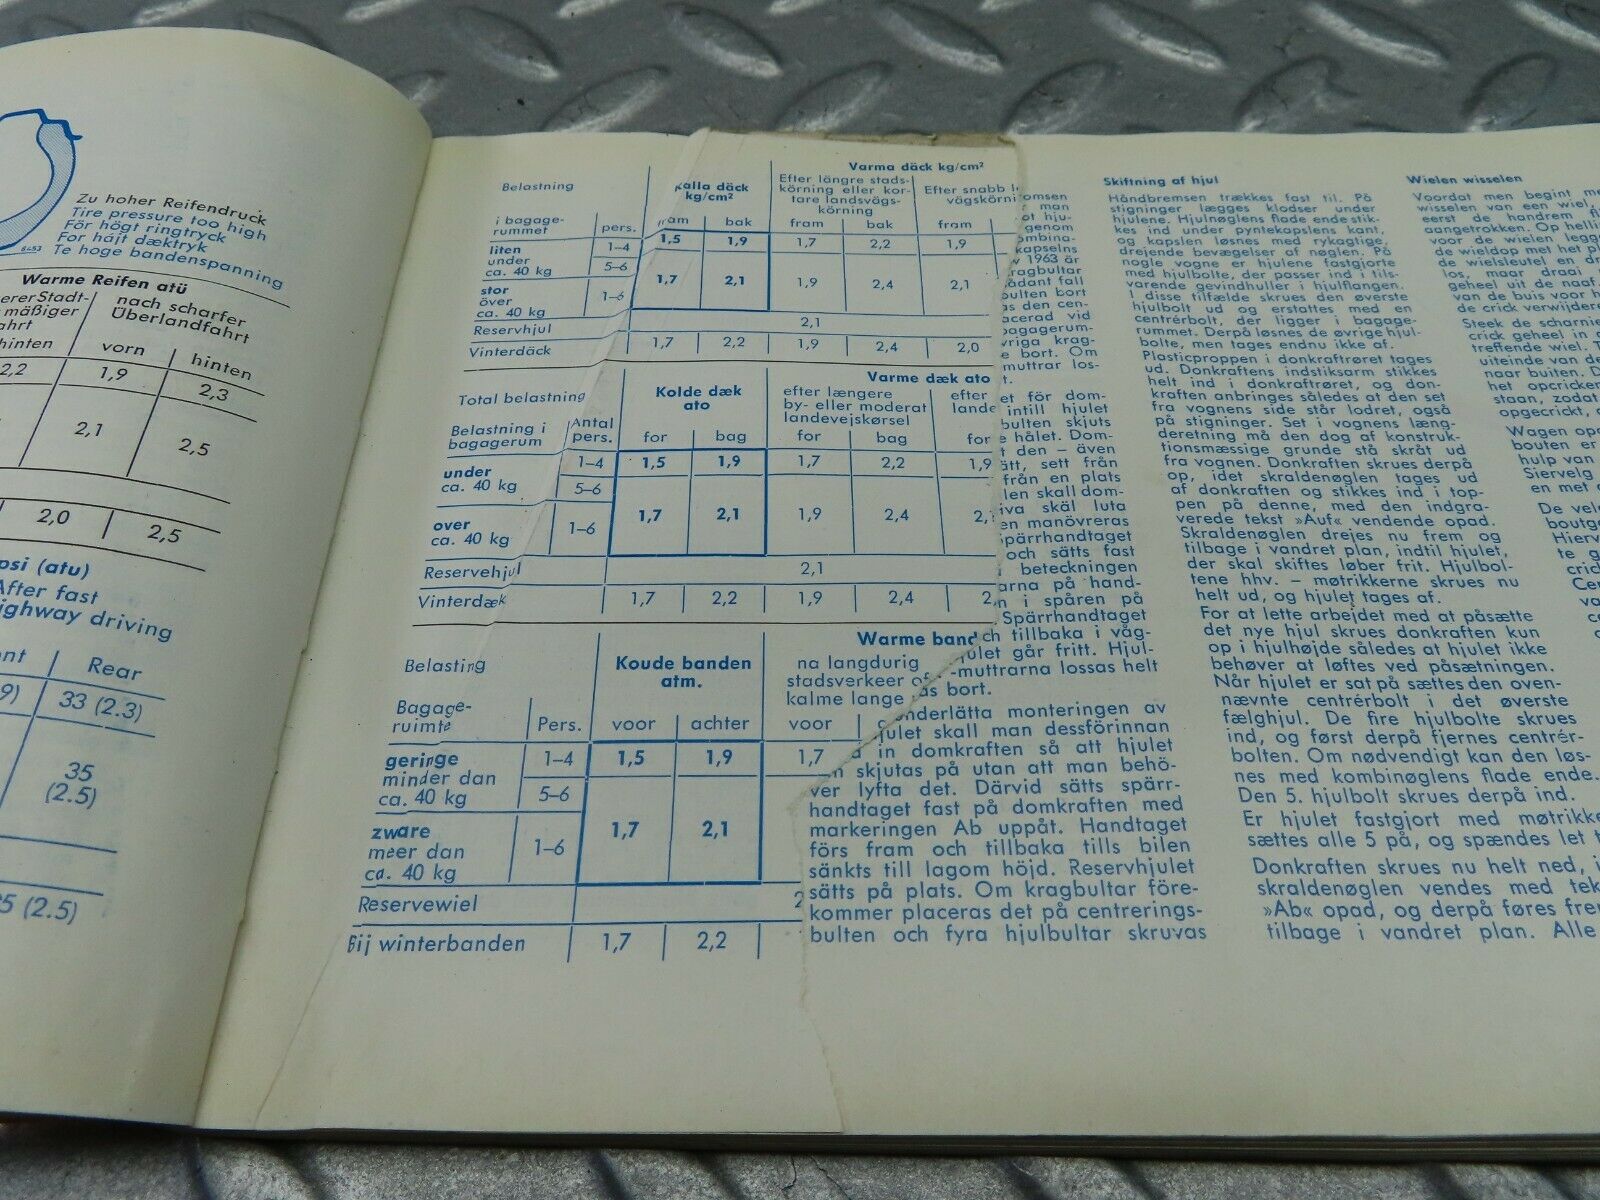 Zu hoher Reifendruck
Tire pressure too high
För högt ringtryck
For højt dæktryk
Te hoge bandenspanning
Warme Reifen atü
nach scharfer
Überlandfahrt
hinten vorn hinten
2,2 1,9 2,3
2,1 2,5
2,0 2,5
psi (atu)
After fast
highway driving
Rear
33 (2.3)
35
(2.5)
(2.5)
Belastning
kalla däck
kg/cm²
Varma däck kg/cm²
Efter längre stads-
körning eller kor-
tare landsvägs-
körning
Efter snabb
vägskörni
i bagage-
rummet pers. fram bak fram bak fram
liten
under
ca. 40 kg
1–4 1,5 1,9 1,7 2,2 1,9
5–6
1,7 2,1 1,9 2,4 2,1
stor
över
ca. 40 kg
1–6
Reservhjul 2,1
Vinterdäck 1,7 2,2 1,9 2,4 2,0
Total belastning
Kolde dæk
ato
Varme dæk ato
efter længere
by- eller moderat
landevejskørsel
efter
lande
Belastning i
bagagerum
Antal
pers.
for bag for bag for
under
ca. 40 kg
1–4 1,5 1,9 1,7 2,2 1,9
5–6
1,7 2,1 1,9 2,4 2,
over
ca. 40 kg
1–6
Reservehjul 2,1
Vinterdæk 1,7 2,2 1,9 2,4 2,
Belasting
Koude banden
atm.
Warme band
na langdurig
stadsverkeer of
kalme lange
Bagage-
ruimte Pers. voor achter voor
geringe
minder dan
ca. 40 kg
1–4 1,5 1,9 1,7
5–6
1,7 2,1
zware
meer dan
ca. 40 kg
1–6
Reservewiel 2
Bij winterbanden 1,7 2,2
man
genom
v 1963 är
kragbultar
bulten bort
cerad vid
bort. Om
muttrar los-
t.
för dom-
intill hjulet
bulten skjuts
hålet. Dom-
den – även
sätt, sett från
från en plats
len skall dom-
luta
en manövreras
spärrhandtaget
och sätts fast
beteckningen
arna på hand-
i spåren på
Spärrhandtaget
och tillbaka i våg-
julet går fritt. Hjul-
-muttrarna lossas helt
bort.
underlätta monteringen av
julet skall man dessförinnan
in domkraften så att hjulet
skjutas på utan att man behö-
ver lyfta det. Därvid sätts spärr-
handtaget fast på domkraften med
markeringen Ab uppåt. Handtaget
förs fram och tillbaka tills bilen
sänkts till lagom höjd. Reservhjulet
sätts på plats. Om kragbultar före-
kommer placeras det på centrerings-
bulten och fyra hjulbultar skruvas
Skiftning af hjul
Håndbremsen trækkes fast til. På
stigninger lægges klodser under
hjulene. Hjulnøglens flade ende stik-
kes ind under pyntekapslens kant,
og kapslen løsnes med rykagtige,
drejende bevægelser af nøglen. På
nogle vogne er hjulene fastgjorte
med hjulbolte, der passer ind i tils-
varende gevindhuller i hjulflangen.
I disse tilfælde skrues den øverste
hjulbolt ud og erstattes med en
centrérbolt, der ligger i bagage-
rummet. Derpå løsnes de øvrige hjul-
bolte, men tages endnu ikke af.
Plasticproppen i donkraftrøret tages
ud. Donkraftens indstiksarm stikkes
helt ind i donkraftrøret, og don-
kraften anbringes således at den set
fra vognens side står lodret, også
på stigninger. Set i vognens læng-
deretning må den dog af konstruk-
tionsmæssige grunde stå skråt ud
fra vognen. Donkraften skrues derpå
op, idet skraldenøglen tages ud
af donkraften og stikkes ind i top-
pen på denne, med den indgra-
verede tekst »Auf« vendende opad.
Skraldenøglen drejes nu frem og
tilbage i vandret plan, indtil hjulet,
der skal skiftes løber frit. Hjulbol-
tene hhv. – møtrikkerne skrues nu
helt ud, og hjulet tages af.
For at lette arbejdet med at påsætte
det nye hjul skrues donkraften kun
op i hjulhøjde således at hjulet ikke
behøver at løftes ved påsætningen.
Når hjulet er sat på sættes den oven-
nævnte centrérbolt i det øverste
fælghjul. De fire hjulbolte skrues
ind, og først derpå fjernes centrér-
bolten. Om nødvendigt kan den løs-
nes med kombinøglens flade ende.
Den 5. hjulbolt skrues derpå ind.
Er hjulet fastgjort med møtrikke
sættes alle 5 på, og spændes let t
Donkraften skrues nu helt ned, i
skraldenøglen vendes med tek
»Ab« opad, og derpå føres fre
tilbage i vandret plan. Alle
Wielen wisselen
Voordat men begint me
wisselen van een wiel,
eerst de handrem
aangetrokken. Op hellin
voor de wielen legg
de wieldop met het pl
de wielsleutel en dr
los, maar draai
geheel uit de naaf.
van de buis voor h
de crick verwijdere
Steek de scharnie
crick geheel in
treffende wiel. T
uiteinde van de
naar buiten. D
het opcricken
staan, zodat
opgecrickt,
Wagen op
bouten er
hulp van
Siervelg
en met
De vel
boutg
Hierv
te g
cric
Cen
va